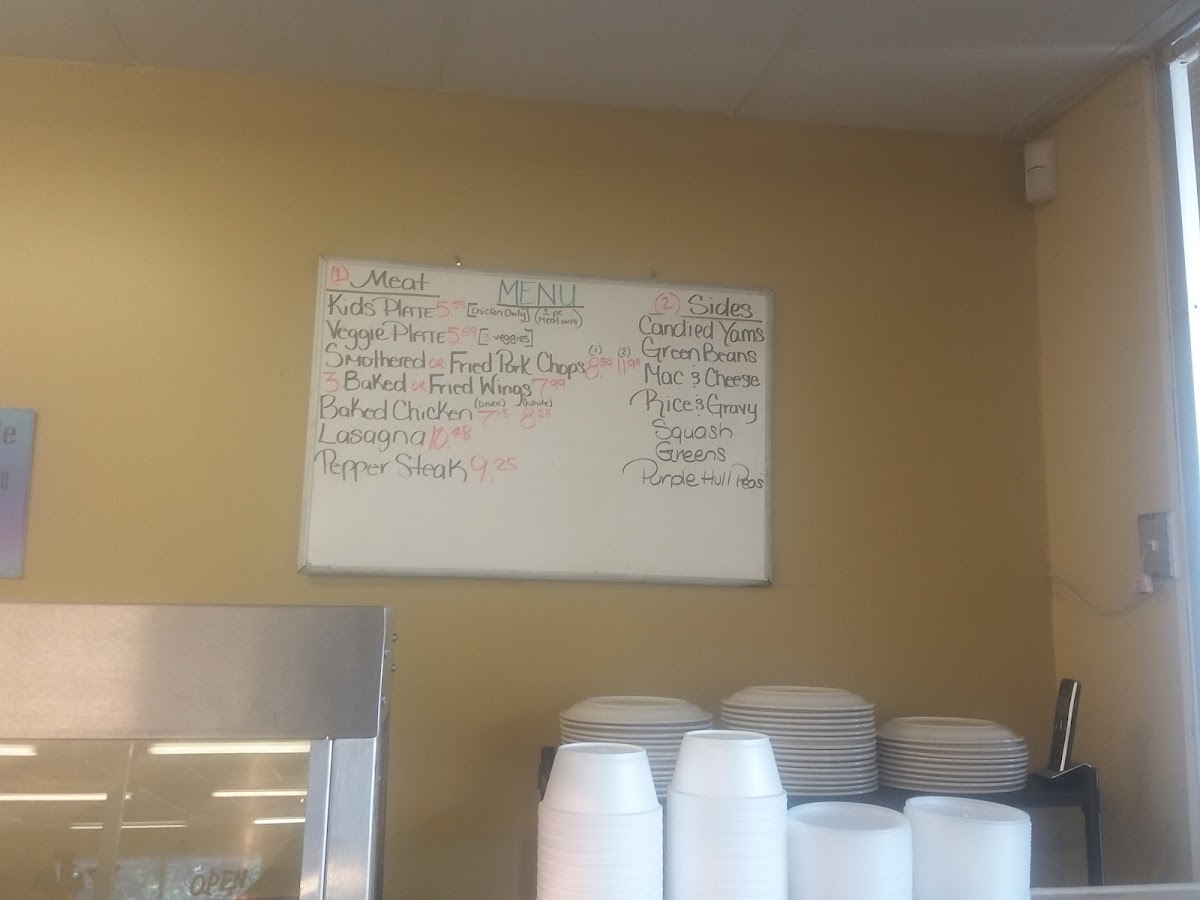 MENU
(1) Meat
Kids' PLATE 5.59 [Chicken Only] (1 pc Meat only)
Veggie PLATE 5.69 [3 veggies]
Smothered OR Fried Pork Chops (1) 8.50 (2) 11.99
3 Baked OR Fried Wings 7.99
Baked Chicken (Dark) 7.15 (White) 8.25
Lasagna 10.48
Pepper Steak 9.25
(2) Sides
Candied Yams
Green Beans
Mac & Cheese
Rice & Gravy
Squash
Greens
Purple Hull Peas
OPEN